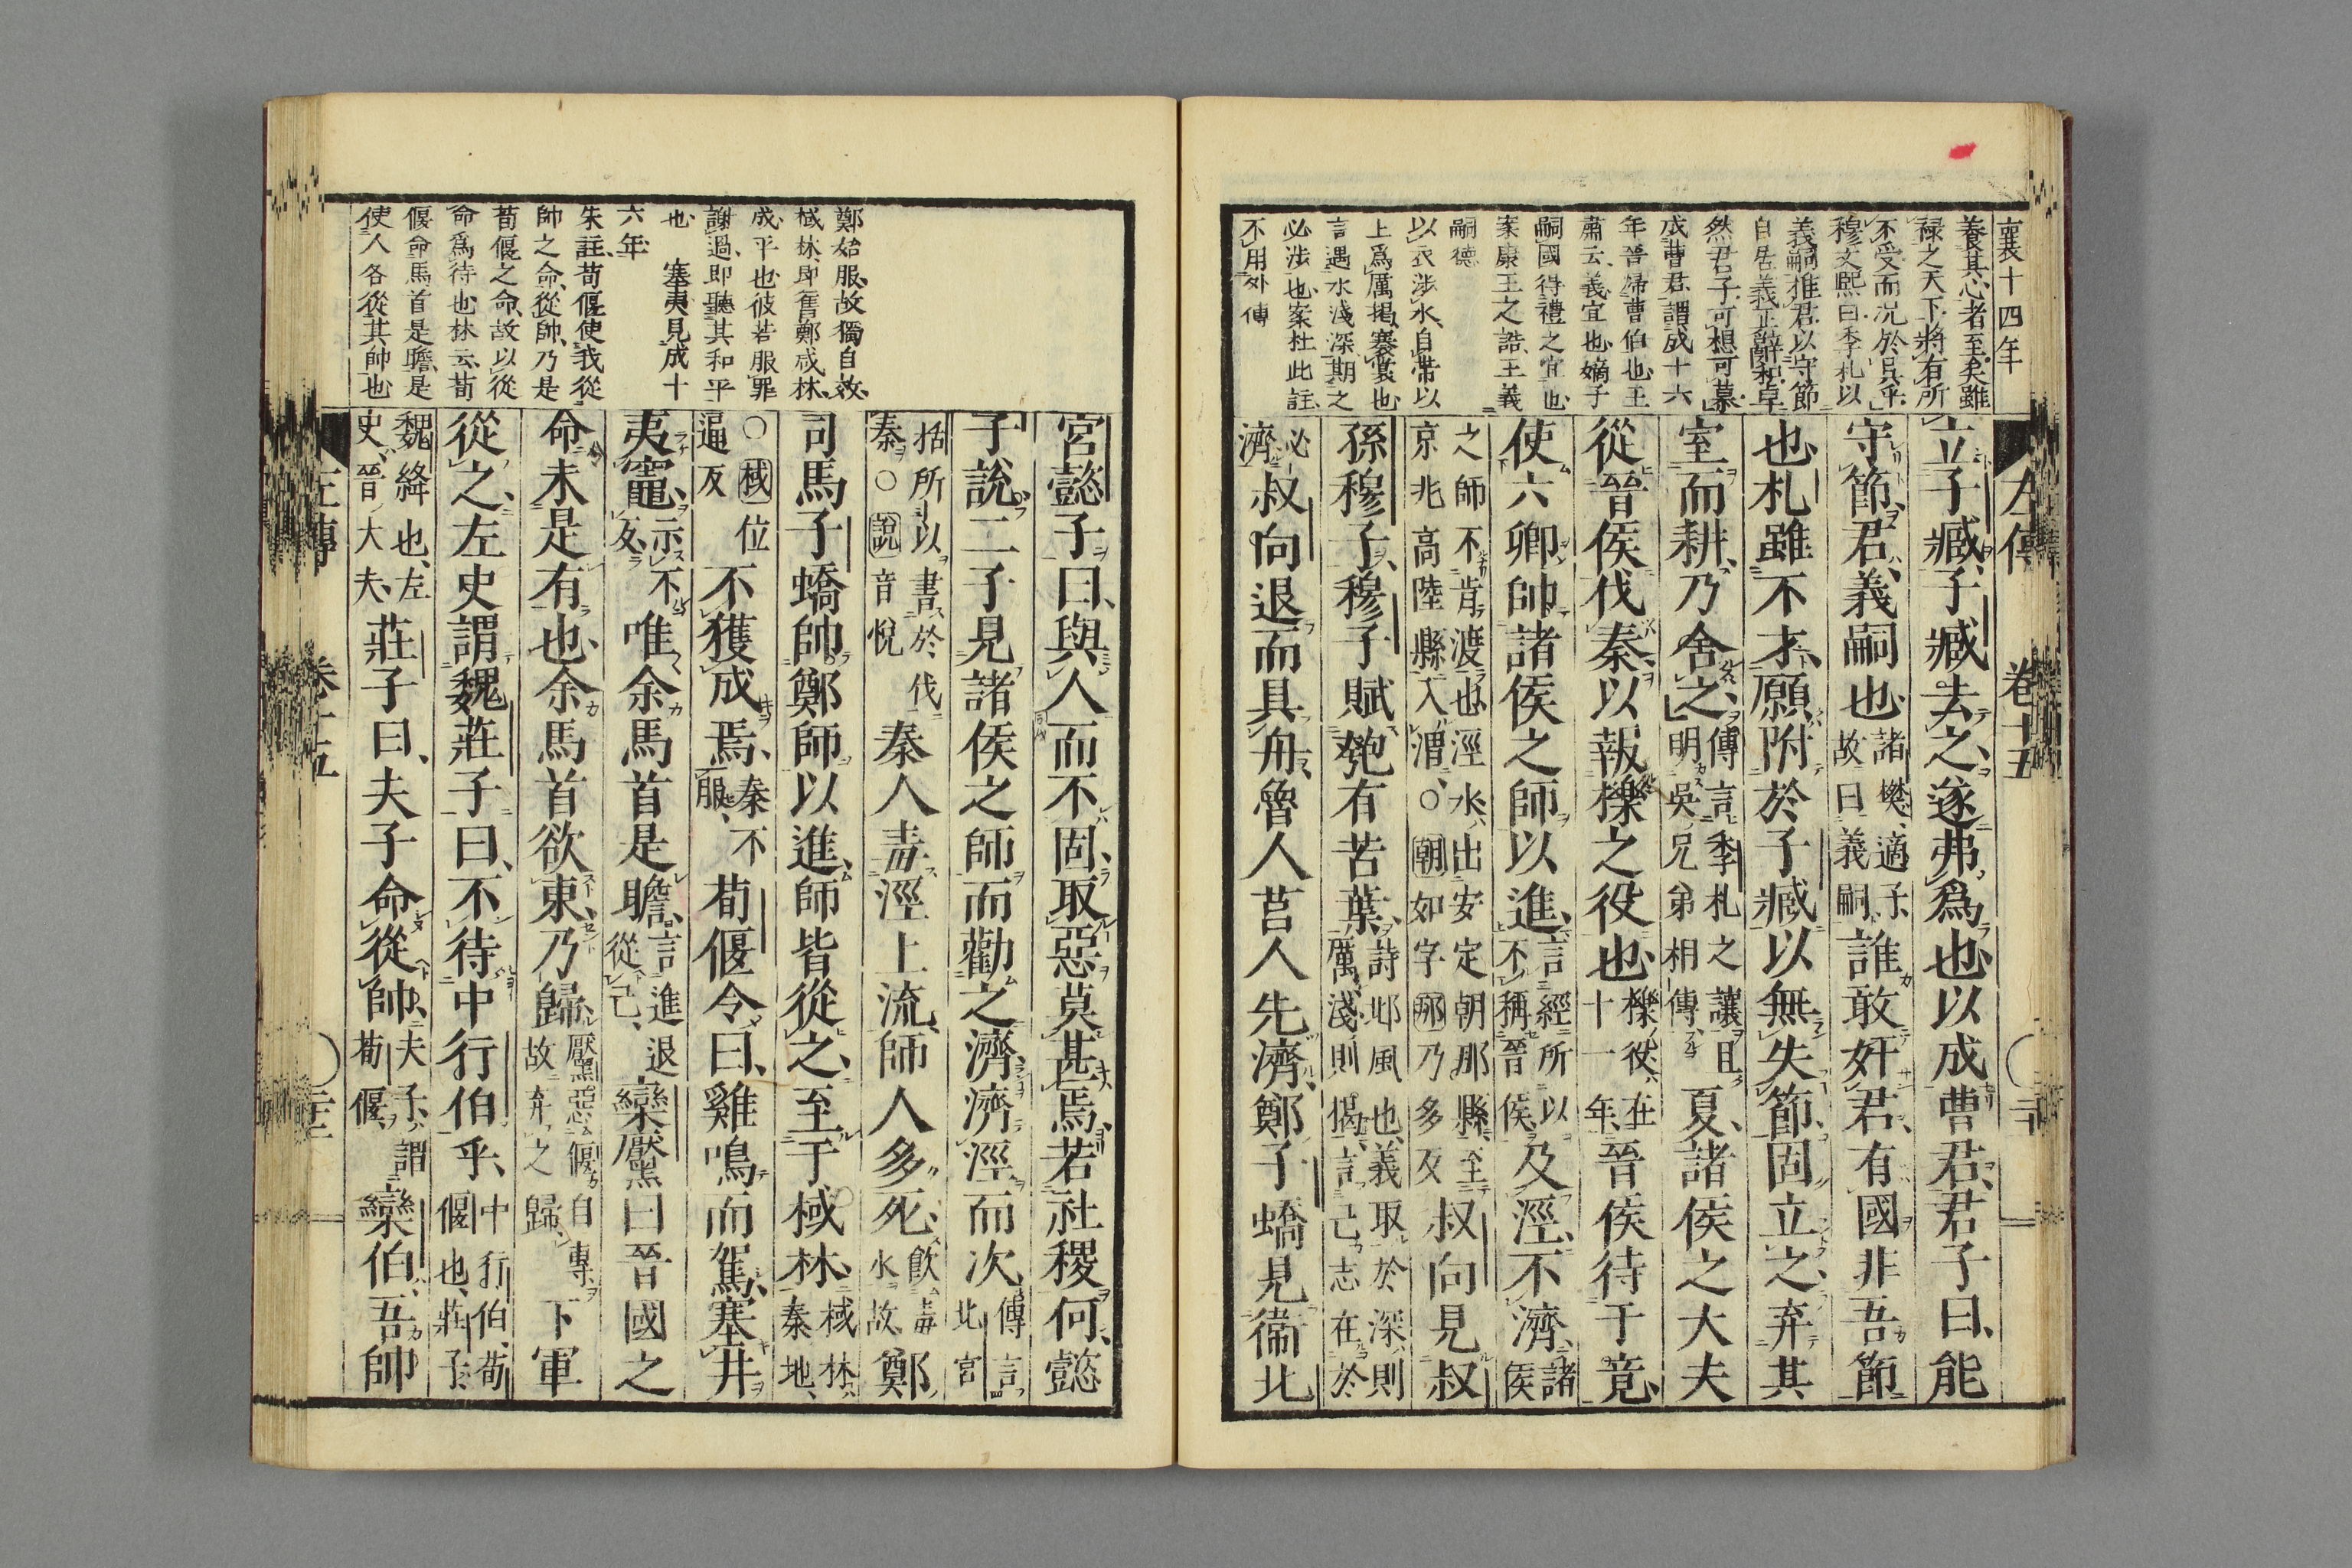 襄十四年
養其心者至矣雖
祿之天下將有所
不受而況於呉乎
穆文熙曰季札以
義嗣推君以守節
自居義正辭和卓
然君子可想可慕
成曹君謂成十六
年晉歸曹伯也王
肅云義宜也嫡子
嗣國得禮之宜也
案康王之誥王義
嗣德
以衣涉水自帶以
上爲厲揭褰裳也
言遇水淺深期之
必涉也案杜此註
不用外傳
左傳 卷十五 二十一
立子臧子臧去之遂弗爲也以成曹君君子曰能
守節君義嗣也諸樊適子故曰義嗣誰敢奸君有國非吾節
也札雖不才願附於子臧以無失節固立之弃其
室而耕乃舍之傳言季札之讓且明吳兄弟相傳夏諸侯之大夫
從晉侯伐秦以報櫟之役也櫟役在十一年晉侯待于竟
使六卿帥諸侯之師以進言經所以不稱晉侯及涇不濟諸侯
之師不肯渡也涇水出安定朝那縣至京兆高陸縣入渭○朝如字那乃多反叔向見叔
孫穆子穆子賦匏有苦葉詩邶風也義取於深則厲淺則揭言己志在於
必濟叔向退而具舟魯人莒人先濟鄭子蟜見衞北
宮懿子曰與人而不固取惡莫甚焉若社稷何懿
子說二子見諸侯之師而勸之濟濟涇而次傳言北宮
括所以書於伐秦○說音悅秦人毒涇上流師人多死飲毒水故鄭
司馬子蟜帥鄭師以進師皆從之至于棫林棫林秦地
○棫位逼反不獲成焉秦不服荀偃令曰雞鳴而駕塞井
夷竈示不反唯余馬首是瞻言進退從己欒黶曰晉國之
命未是有也余馬首欲東乃歸黶惡偃自專故弃之歸下軍
從之左史謂魏莊子曰不待中行伯乎中行伯荀偃也莊子
魏絳也左史晉大夫莊子曰夫子命從帥夫子謂荀偃欒伯吾帥
鄭始服故獨自效
棫林即舊鄭咸林
成平也彼若服罪
謝過即聽其和平
也 塞夷見成十
六年
朱註荀偃使我從
帥之命從帥乃是
荀偃之命故以從
命爲待也林云荀
偃命馬首是瞻是
使人各從其帥也
左傳 卷十五